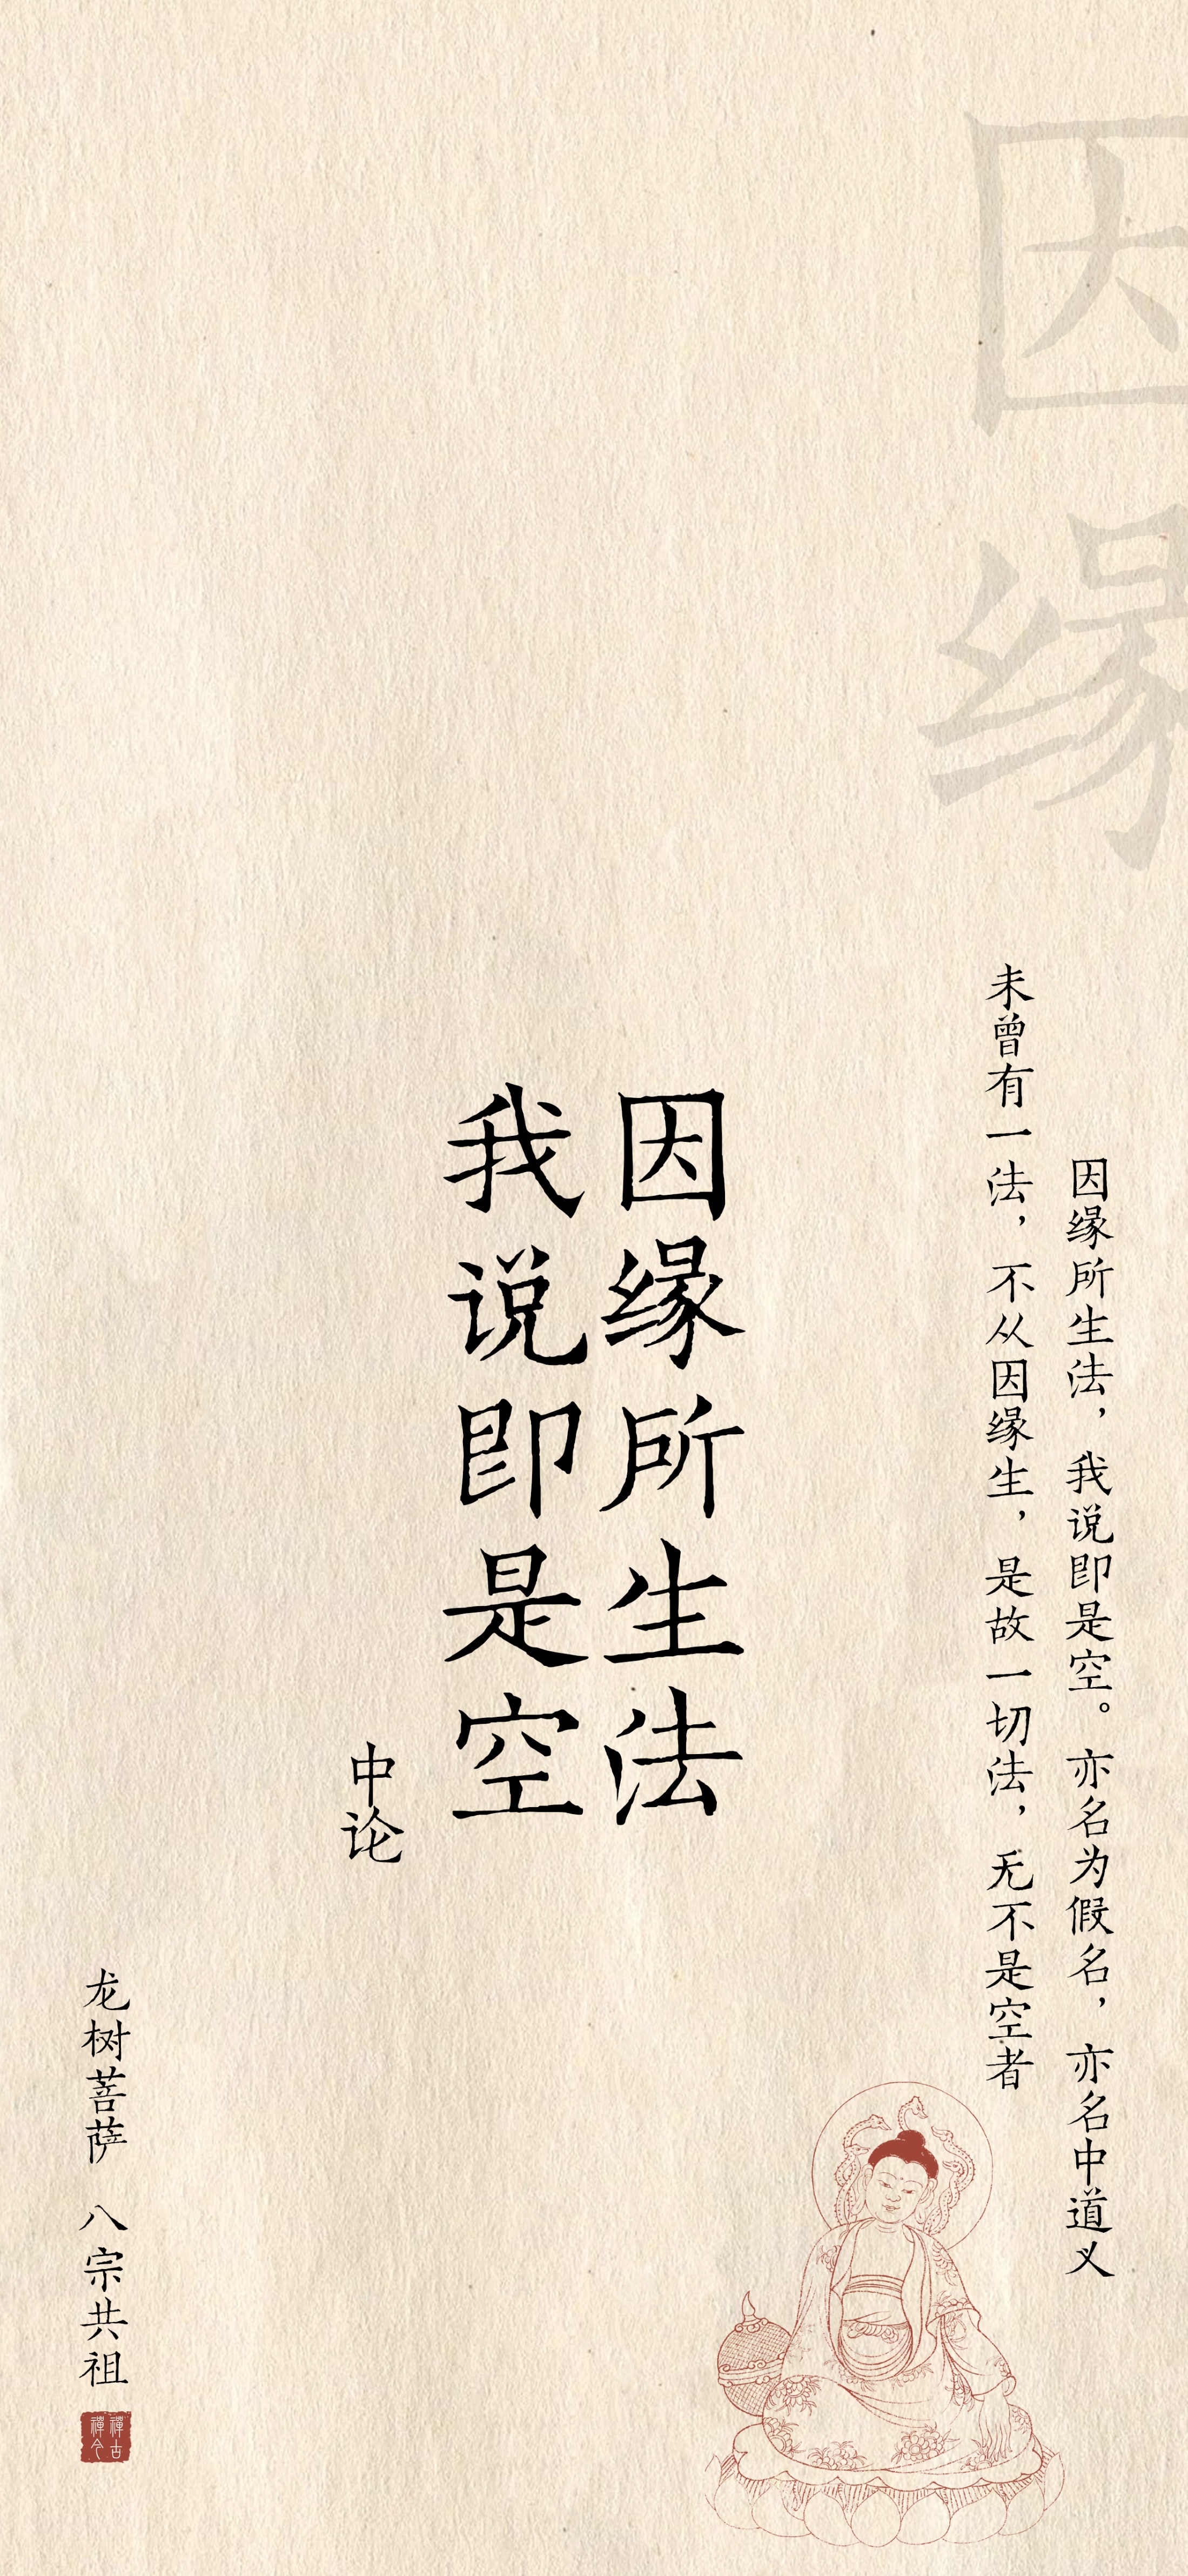 因缘
因缘所生法，我说即是空。亦名为假名，亦名中道义
未曾有一法，不从因缘生，是故一切法，无不是空者
因缘所生法
我说即是空
中论
龙树菩萨 八宗共祖
禪古
禪今